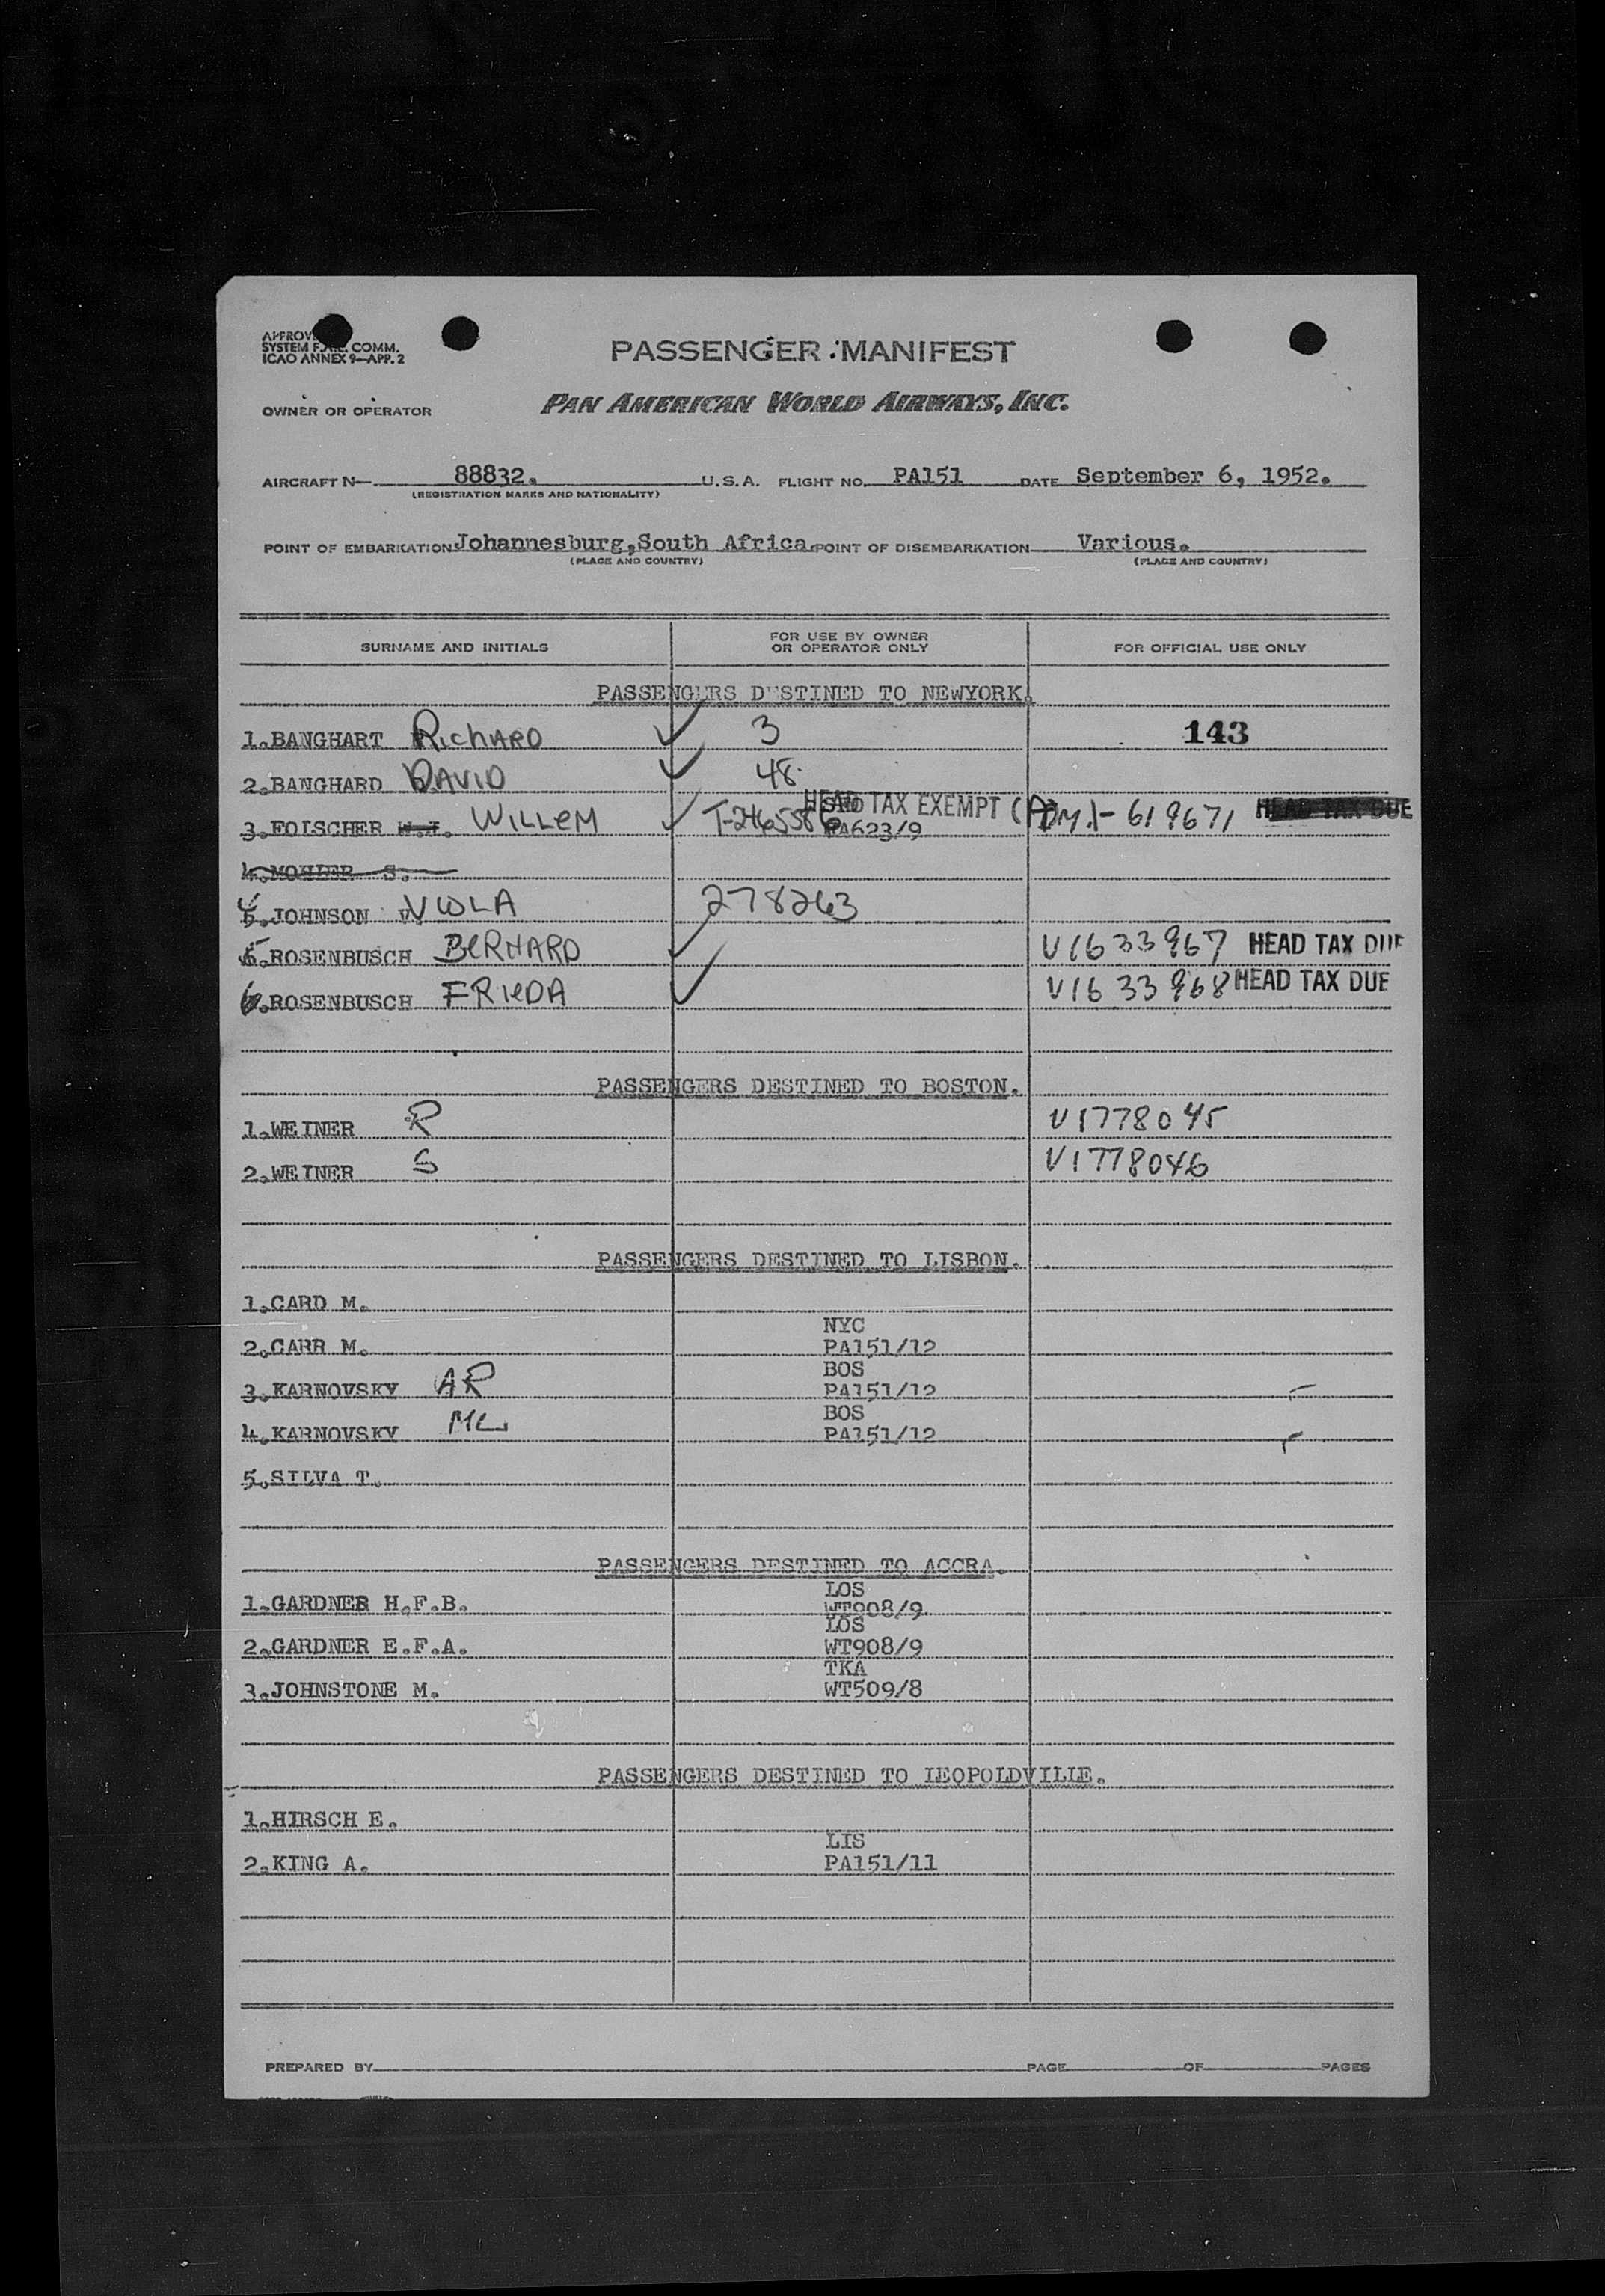 SYSTEM F.A.L. COMM.
ICAO ANNEX 9—APP. 2
PASSENGER MANIFEST
OWNER OR OPERATOR PAN AMERICAN WORLD AIRWAYS, INC.
AIRCRAFT N— 88832. U.S.A. FLIGHT NO. PA151 DATE September 6, 1952.
(REGISTRATION MARKS AND NATIONALITY)
POINT OF EMBARKATION Johannesburg,South Africa. POINT OF DISEMBARKATION Various.
(PLACE AND COUNTRY) (PLACE AND COUNTRY)
SURNAME AND INITIALS FOR USE BY OWNER OR OPERATOR ONLY FOR OFFICIAL USE ONLY
PASSENGERS DESTINED TO NEWYORK.
1.BANGHART RICHARD 3 143
2.BANGHARD DAVID 48
HEAD TAX EXEMPT (A) HEAD TAX DUE
3.FOLSCHER W.J. WILLEM T-2465586 PA623/9 619671
4.MOHLER S.
4 5.JOHNSON V. VIOLA 278263
5 ROSENBUSCH BERHARD V1633967 HEAD TAX DUE
6 ROSENBUSCH FRIEDA V1633968 HEAD TAX DUE
PASSENGERS DESTINED TO BOSTON.
1.WEINER R V1778045
2.WEINER S V1778046
PASSENGERS DESTINED TO LISBON.
1.CARD M.
NYC
2.CARR M. PA151/12
BOS
3.KARNOVSKY AR PA151/12
BOS
4.KARNOVSKY ML PA151/12
5.SILVA T.
PASSENGERS DESTINED TO ACCRA.
LOS
1.GARDNER H.F.B. WT908/9
LOS
2.GARDNER E.F.A. WT908/9
TKA
3.JOHNSTONE M. WT509/8
PASSENGERS DESTINED TO LEOPOLDVILLE.
1.HIRSCH E.
LIS
2.KING A. PA151/11
PREPARED BY PAGE OF PAGES